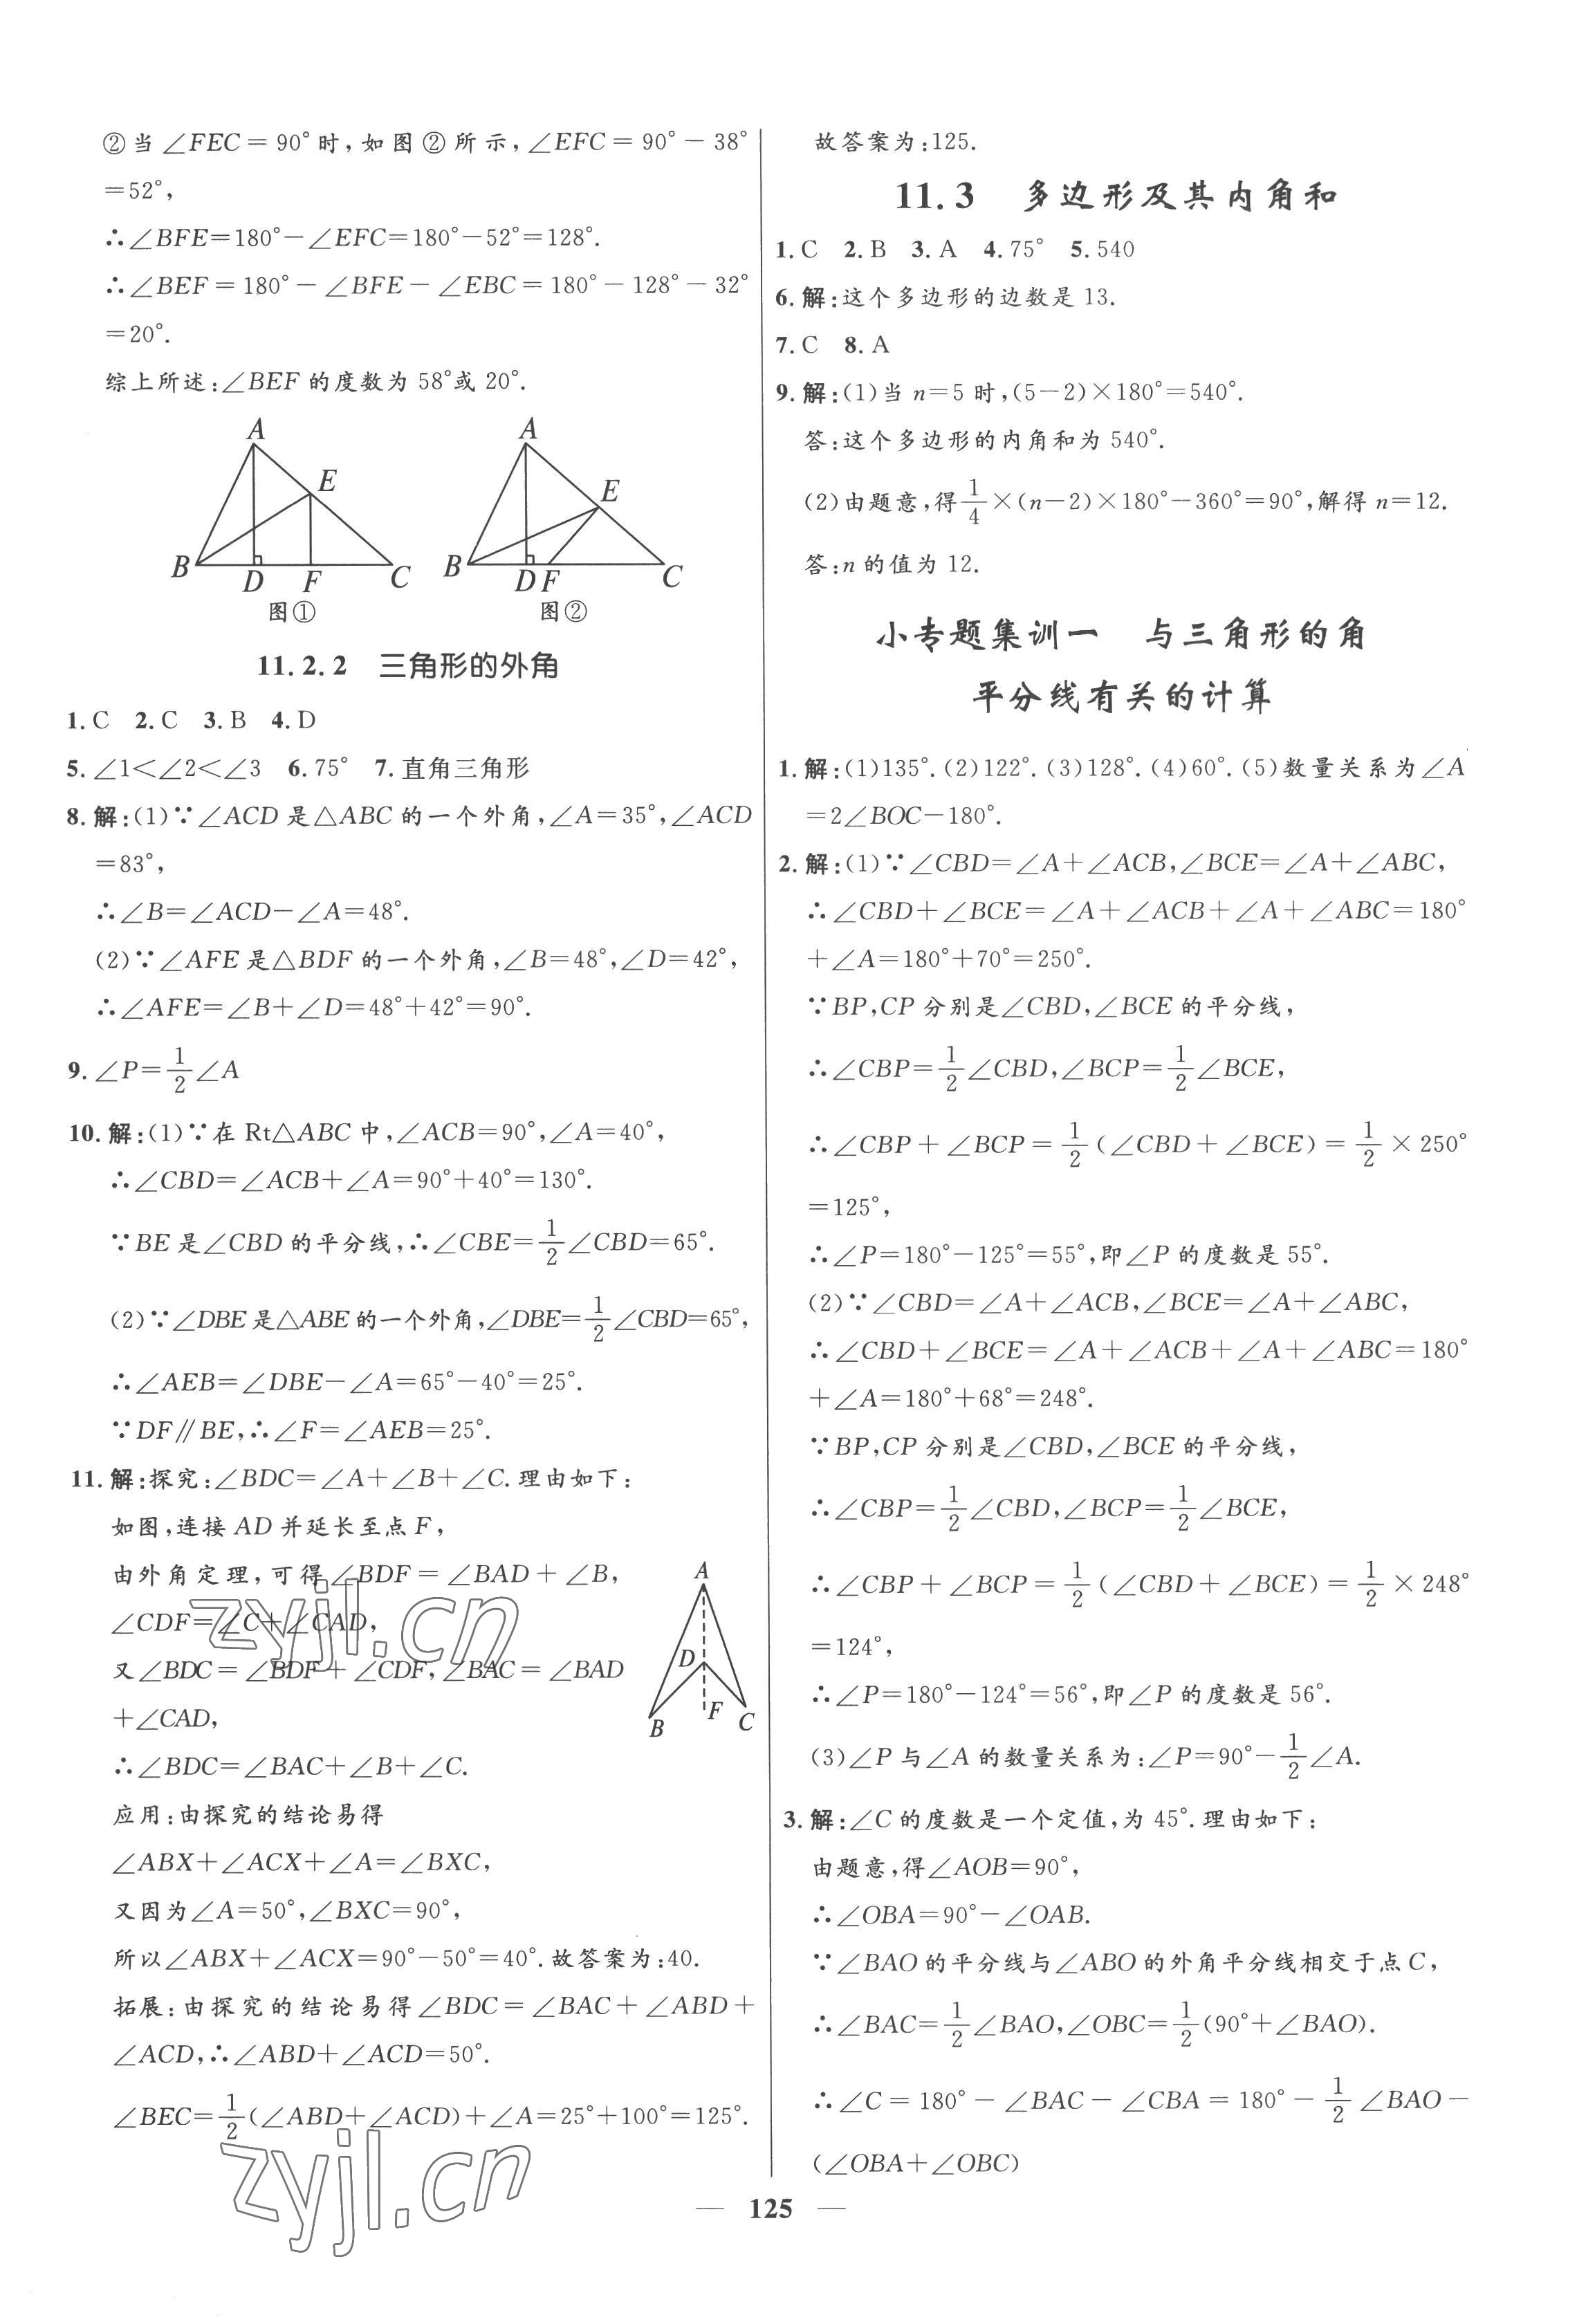 ②当∠FEC=90°时,如图②所示,∠EFC=90°-38°
=52°,
∴∠BFE=180°-∠EFC=180°-52°=128°.
∴∠BEF=180°-∠BFE-∠EBC=180°-128°-32°
=20°.
综上所述:∠BEF的度数为58°或20°.
A
E
B
D
F
C
图①
A
E
B
D
F
C
图②
11.2.2 三角形的外角
1.C 2.C 3.B 4.D
5.∠1<∠2<∠3 6.75° 7.直角三角形
8.解:(1)∵∠ACD是△ABC的一个外角,∠A=35°,∠ACD
=83°,
∴∠B=∠ACD-∠A=48°.
(2)∵∠AFE是△BDF的一个外角,∠B=48°,∠D=42°,
∴∠AFE=∠B+∠D=48°+42°=90°.
9.∠P=1/2∠A
10.解:(1)∵在Rt△ABC中,∠ACB=90°,∠A=40°,
∴∠CBD=∠ACB+∠A=90°+40°=130°.
∵BE是∠CBD的平分线,∴∠CBE=1/2∠CBD=65°.
(2)∵∠DBE是△ABE的一个外角,∠DBE=1/2∠CBD=65°,
∴∠AEB=∠DBE-∠A=65°-40°=25°.
∵DF∥BE,∴∠F=∠AEB=25°.
11.解:探究:∠BDC=∠A+∠B+∠C.理由如下:
如图,连接AD并延长至点F,
由外角定理,可得∠BDF=∠BAD+∠B,
∠CDF=∠C+∠CAD,
又∠BDC=∠BDF+∠CDF,∠BAC=∠BAD
+∠CAD,
∴∠BDC=∠BAC+∠B+∠C.
A
D
B
F
C
应用:由探究的结论易得
∠ABX+∠ACX+∠A=∠BXC,
又因为∠A=50°,∠BXC=90°,
所以∠ABX+∠ACX=90°-50°=40°.故答案为:40.
拓展:由探究的结论易得∠BDC=∠BAC+∠ABD+
∠ACD,∴∠ABD+∠ACD=50°.
∠BEC=1/2(∠ABD+∠ACD)+∠A=25°+100°=125°.
zyjl.cn
zyjl.cn
故答案为:125.
11.3 多边形及其内角和
1.C 2.B 3.A 4.75° 5.540
6.解:这个多边形的边数是13.
7.C 8.A
9.解:(1)当n=5时,(5-2)×180°=540°.
答:这个多边形的内角和为540°.
(2)由题意,得1/4×(n-2)×180°-360°=90°,解得n=12.
答:n的值为12.
小专题集训一 与三角形的角
平分线有关的计算
1.解:(1)135°.(2)122°.(3)128°.(4)60°.(5)数量关系为∠A
=2∠BOC-180°.
2.解:(1)∵∠CBD=∠A+∠ACB,∠BCE=∠A+∠ABC,
∴∠CBD+∠BCE=∠A+∠ACB+∠A+∠ABC=180°
+∠A=180°+70°=250°.
∵BP,CP分别是∠CBD,∠BCE的平分线,
∴∠CBP=1/2∠CBD,∠BCP=1/2∠BCE,
∴∠CBP+∠BCP=1/2(∠CBD+∠BCE)=1/2×250°
=125°,
∴∠P=180°-125°=55°,即∠P的度数是55°.
(2)∵∠CBD=∠A+∠ACB,∠BCE=∠A+∠ABC,
∴∠CBD+∠BCE=∠A+∠ACB+∠A+∠ABC=180°
+∠A=180°+68°=248°.
∵BP,CP分别是∠CBD,∠BCE的平分线,
∴∠CBP=1/2∠CBD,∠BCP=1/2∠BCE,
∴∠CBP+∠BCP=1/2(∠CBD+∠BCE)=1/2×248°
=124°,
∴∠P=180°-124°=56°,即∠P的度数是56°.
(3)∠P与∠A的数量关系为:∠P=90°-1/2∠A.
3.解:∠C的度数是一个定值,为45°.理由如下:
由题意,得∠AOB=90°,
∴∠OBA=90°-∠OAB.
∵∠BAO的平分线与∠ABO的外角平分线相交于点C,
∴∠BAC=1/2∠BAO,∠OBC=1/2(90°+∠BAO).
∴∠C=180°-∠BAC-∠CBA=180°-1/2∠BAO-
(∠OBA+∠OBC)
— 125 —